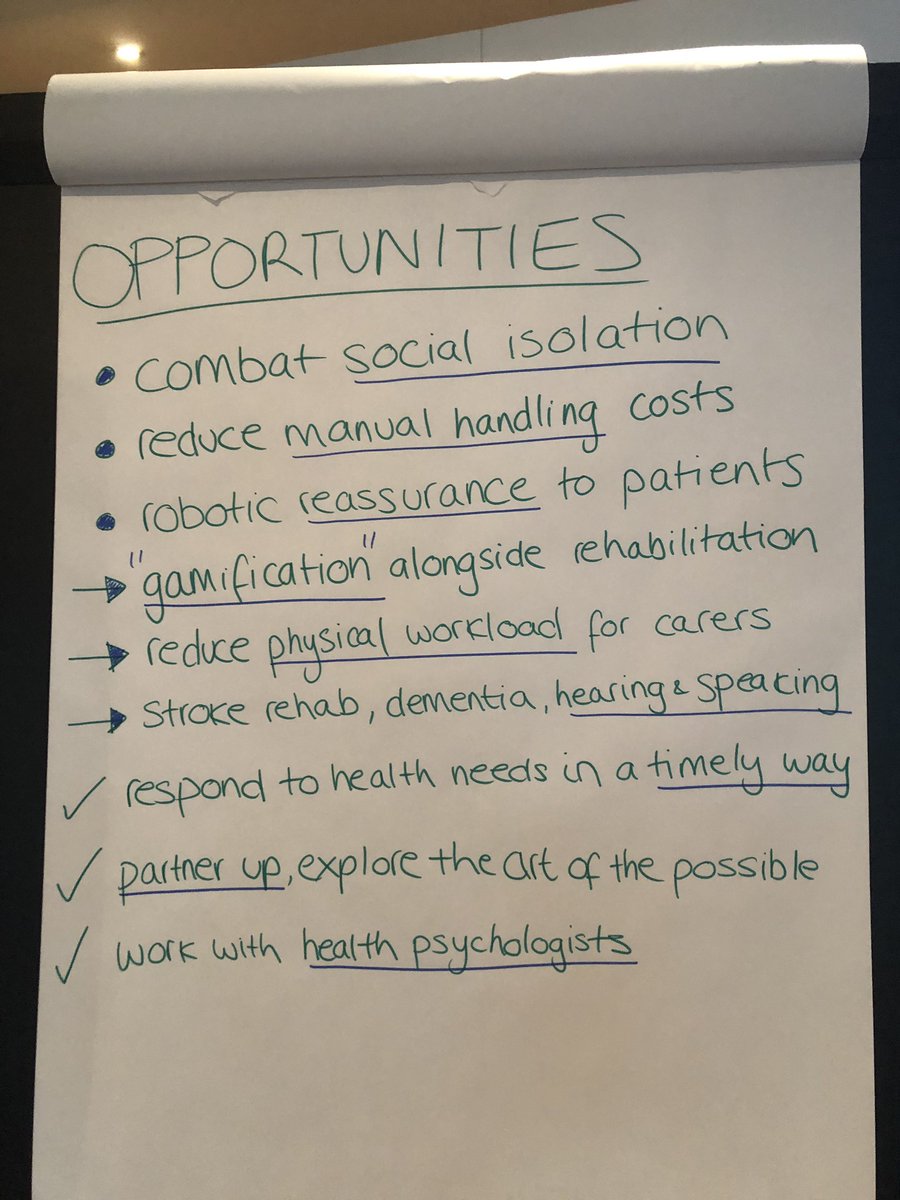 OPPORTUNITIES
• combat social isolation
• reduce manual handling costs
• robotic reassurance to patients
→ "gamification" alongside rehabilitation
→ reduce physical workload for carers
→ stroke rehab, dementia, hearing & speaking
✓ respond to health needs in a timely way
✓ partner up, explore the art of the possible
✓ work with health psychologists